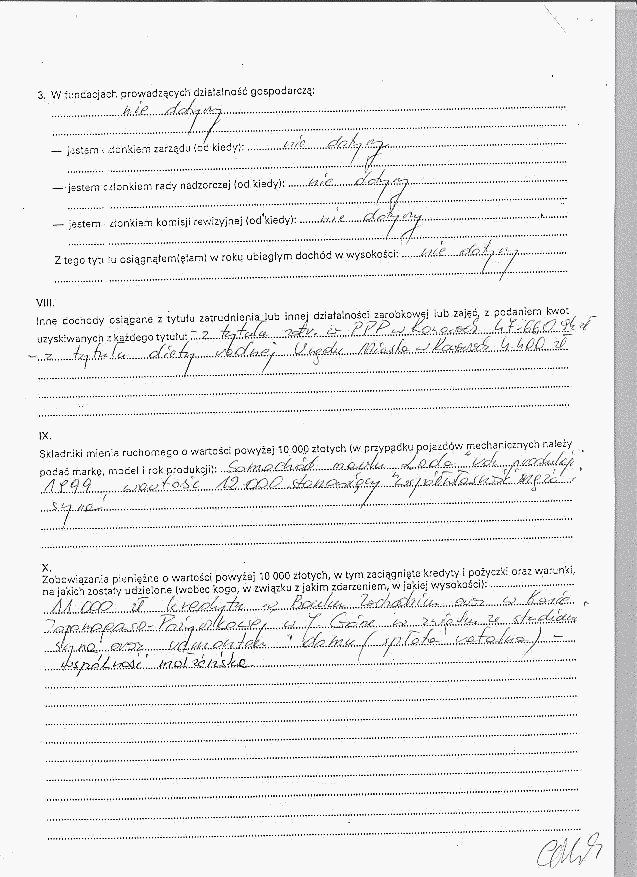 3. W fundacjach prowadzących działalność gospodarczą:
nie dotyczy
— jestem członkiem zarządu (od kiedy): nie dotyczy
— jestem członkiem rady nadzorczej (od kiedy): nie dotyczy
— jestem członkiem komisji rewizyjnej (od kiedy): nie dotyczy
Z tego tytułu osiągnąłem(ęłam) w roku ubiegłym dochód w wysokości: nie dotyczy
VIII.
Inne dochody osiągane z tytułu zatrudnienia lub innej działalności zarobkowej lub zajęć, z podaniem kwot
uzyskiwanych z każdego tytułu: – z tytułu zatr. w PPP w 47.660,96 zł
– z tytułu diety radnej Urzędu Miasta w 4.400 zł
IX.
Składniki mienia ruchomego o wartości powyżej 10 000 złotych (w przypadku pojazdów mechanicznych należy
podać markę, model i rok produkcji): Samochód marki rok produkcji
1999, wartość 12 000 stanowiący współwłasność męża,
syna
X.
Zobowiązania pieniężne o wartości powyżej 10 000 złotych, w tym zaciągnięte kredyty i pożyczki oraz warunki,
na jakich zostały udzielone (wobec kogo, w związku z jakim zdarzeniem, w jakiej wysokości):
11 000 zł kredytu w Banku Zachodnim oraz w Kasie
Zapomogowo-Pożyczkowej w J. Górze w związku ze studiami
syna oraz remontem domu (spłata ratalna) –
wspólność małżeńska